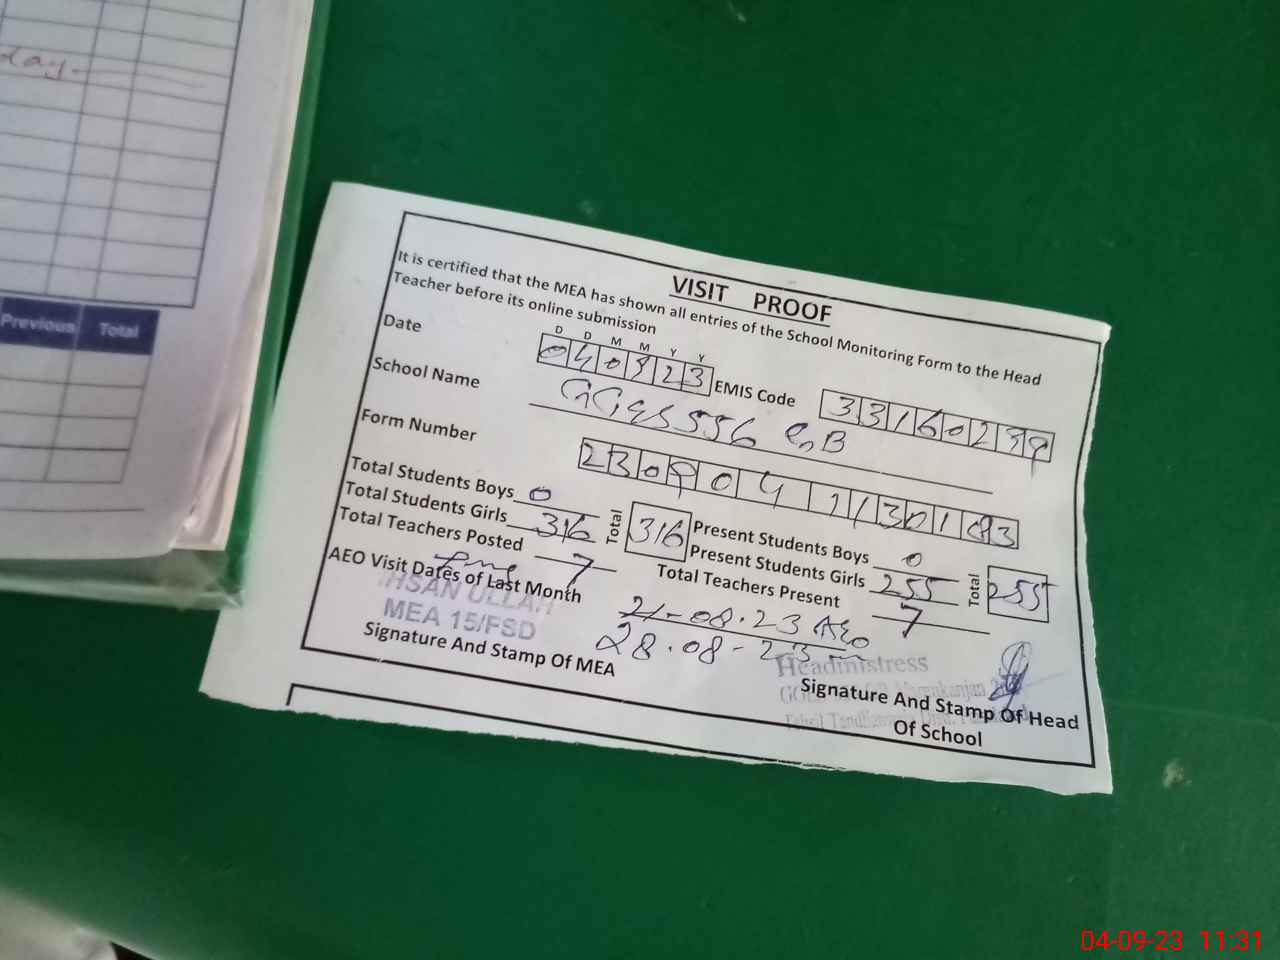 day.
Previous Total
VISIT PROOF
It is certified that the MEA has shown all entries of the School Monitoring Form to the Head
Teacher before its online submission
D D M M Y Y
Date 040923 EMIS Code 33160299
School Name GGES 556 GB
Form Number 2309041130183
Total Students Boys 0 Total 316 Present Students Boys 0 Total 255
Total Students Girls 316 Present Students Girls 255
Total Teachers Posted 7 Total Teachers Present 7
AEO Visit Dates of Last Month 21-08-23 AEO
28-08-23
IHSAN ULLAH
MEA 15/FSD
Signature And Stamp Of MEA
Headmistress
Signature And Stamp Of Head
Of School
04-09-23 11:31